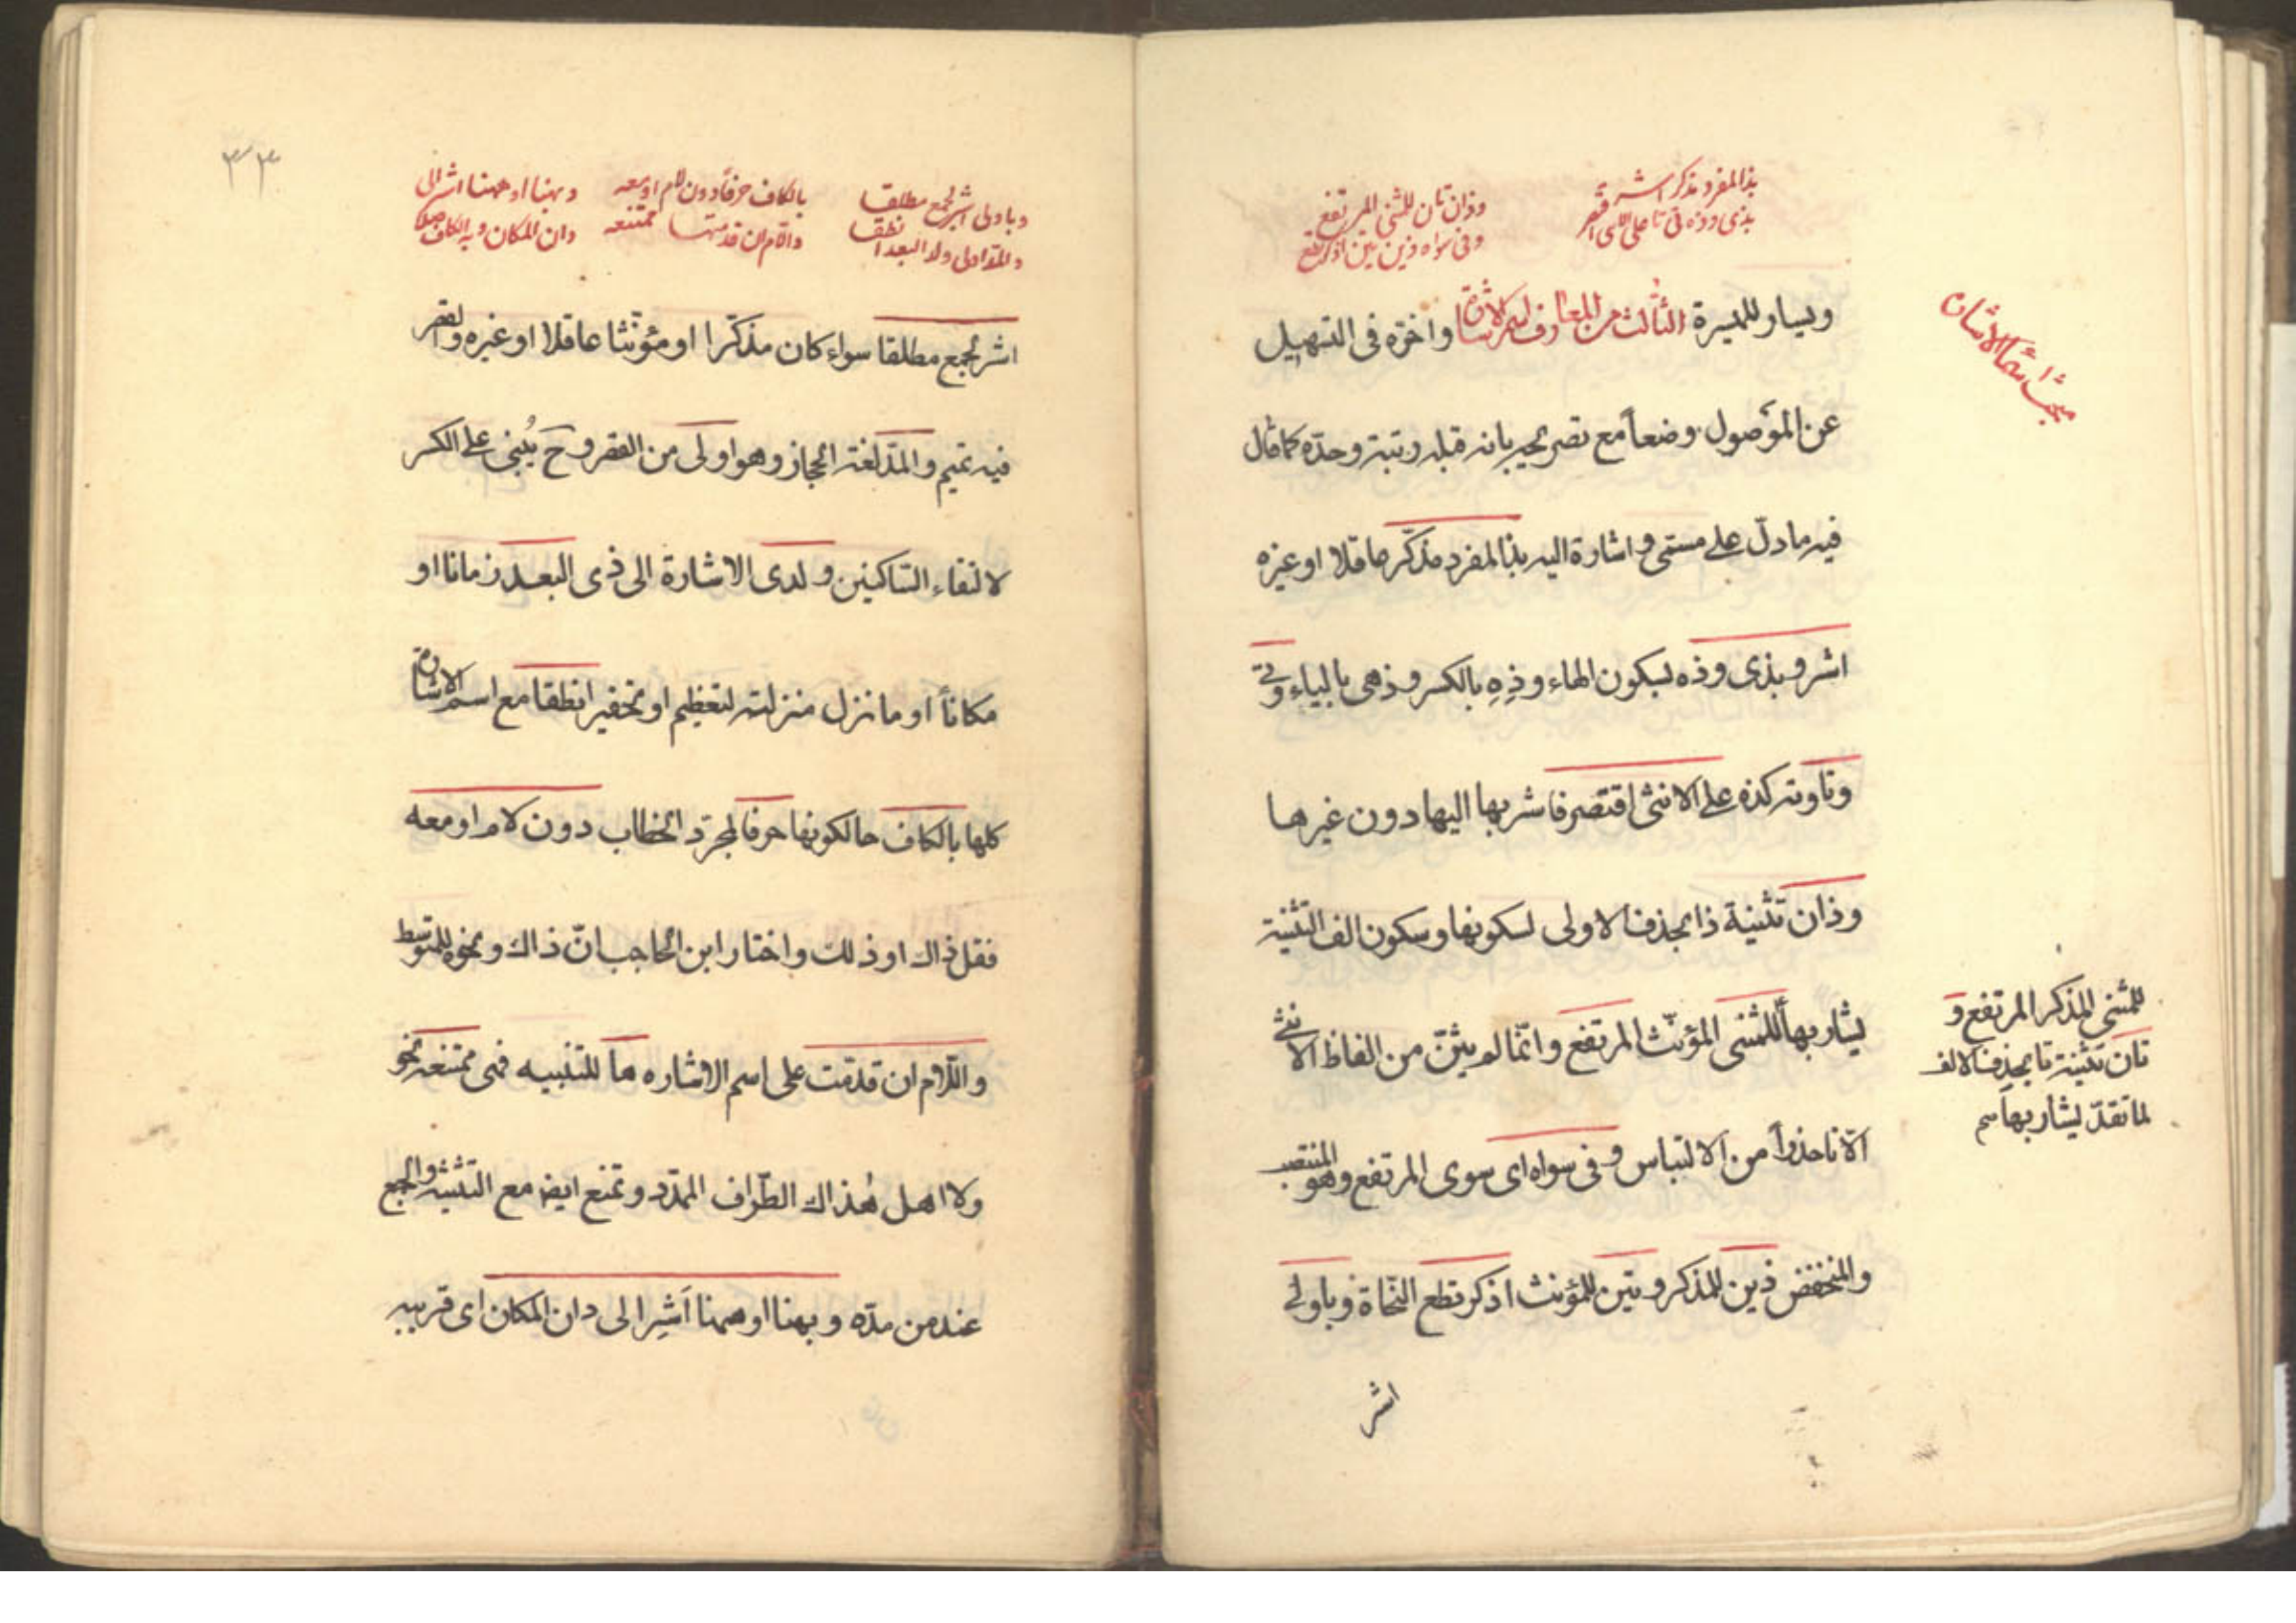 بذا المفرد مذكر اشر
بذى وذه تى تا على الانثى اقتصر
وذان تان للمثنى المرتفع
وفى سواه ذين تين اذكر تطع
مبحث اسماء الاشارة
ويسار للميسرة الثالث من المعارف اسم الاشارة واخره فى التسهيل
عن الموصول وضعاً مع تصريحه بانه قبله رتبة وحدّه كما قال
فيه ما دلّ على مسمّى واشارة اليه بذا لمفرد مذكّر عاقلا او غيره
اشر و بذى وذه بسكون الهاء وذِهِ بالكسر وذهى بالياء و تى
وتا وته كذه على الانثى اقتصر فاشر بها اليها دون غيرها
وذان تثنية ذا بحذف الاولى لسكونها وسكون الف التثنية
يشار بها للمثنى المؤنّث المرتفع وانّما لم يثنّ من الفاظ الانثى
الّا تا حذراً من الالتباس و فى سواه اى سوى المرتفع وهو المنتصب
والمنخفض ذين للمذكر و تين للمؤنث اذكر تطع النّحاة و باولى
للمثنى المذكر المرتفع و
تان تثنية تا بحذف الالف
لما تقدّم يشار بها
اشر
٣٣
وباولى اشر لجمع مطلقا
والمدّ اولى ولدا البعد انطقا
بالكاف حرفاً دون لام او معه
واللام ان قدمت ها ممتنعه
وبهنا او ههنا اشر الى
دان المكان وبه الكاف صلا
اشر لجمع مطلقا سواء كان مذكّرا او مؤنّثا عاقلا او غيره والقصر
فيه تميم والمدّ لغة الحجاز وهو اولى من القصر و ح يُبنى على الكسر
لالتقاء السّاكنين و لدى الاشارة الى ذى البعد زمانا او
مكاناً او ما نزل منزلته لتعظيم او تحقير انطقا مع اسم الاشارة
كلها بالكاف حالكونها حرفا لمجرّد الخطاب دون لام او معه
فقل ذاك او ذلك واختار ابن الحاجب انّ ذاك ونحوه للمتوسط
واللّام ان قدّمت على اسم الاشاره ها للتنبيه فهى ممتنعه نحو
ولا اهل هذاك الطّراف الممدّد و تمنع ايضا مع التثنية والجمع
عند من مدّه و بهنا او ههنا اَشِر الى دان المكان اى قريبه